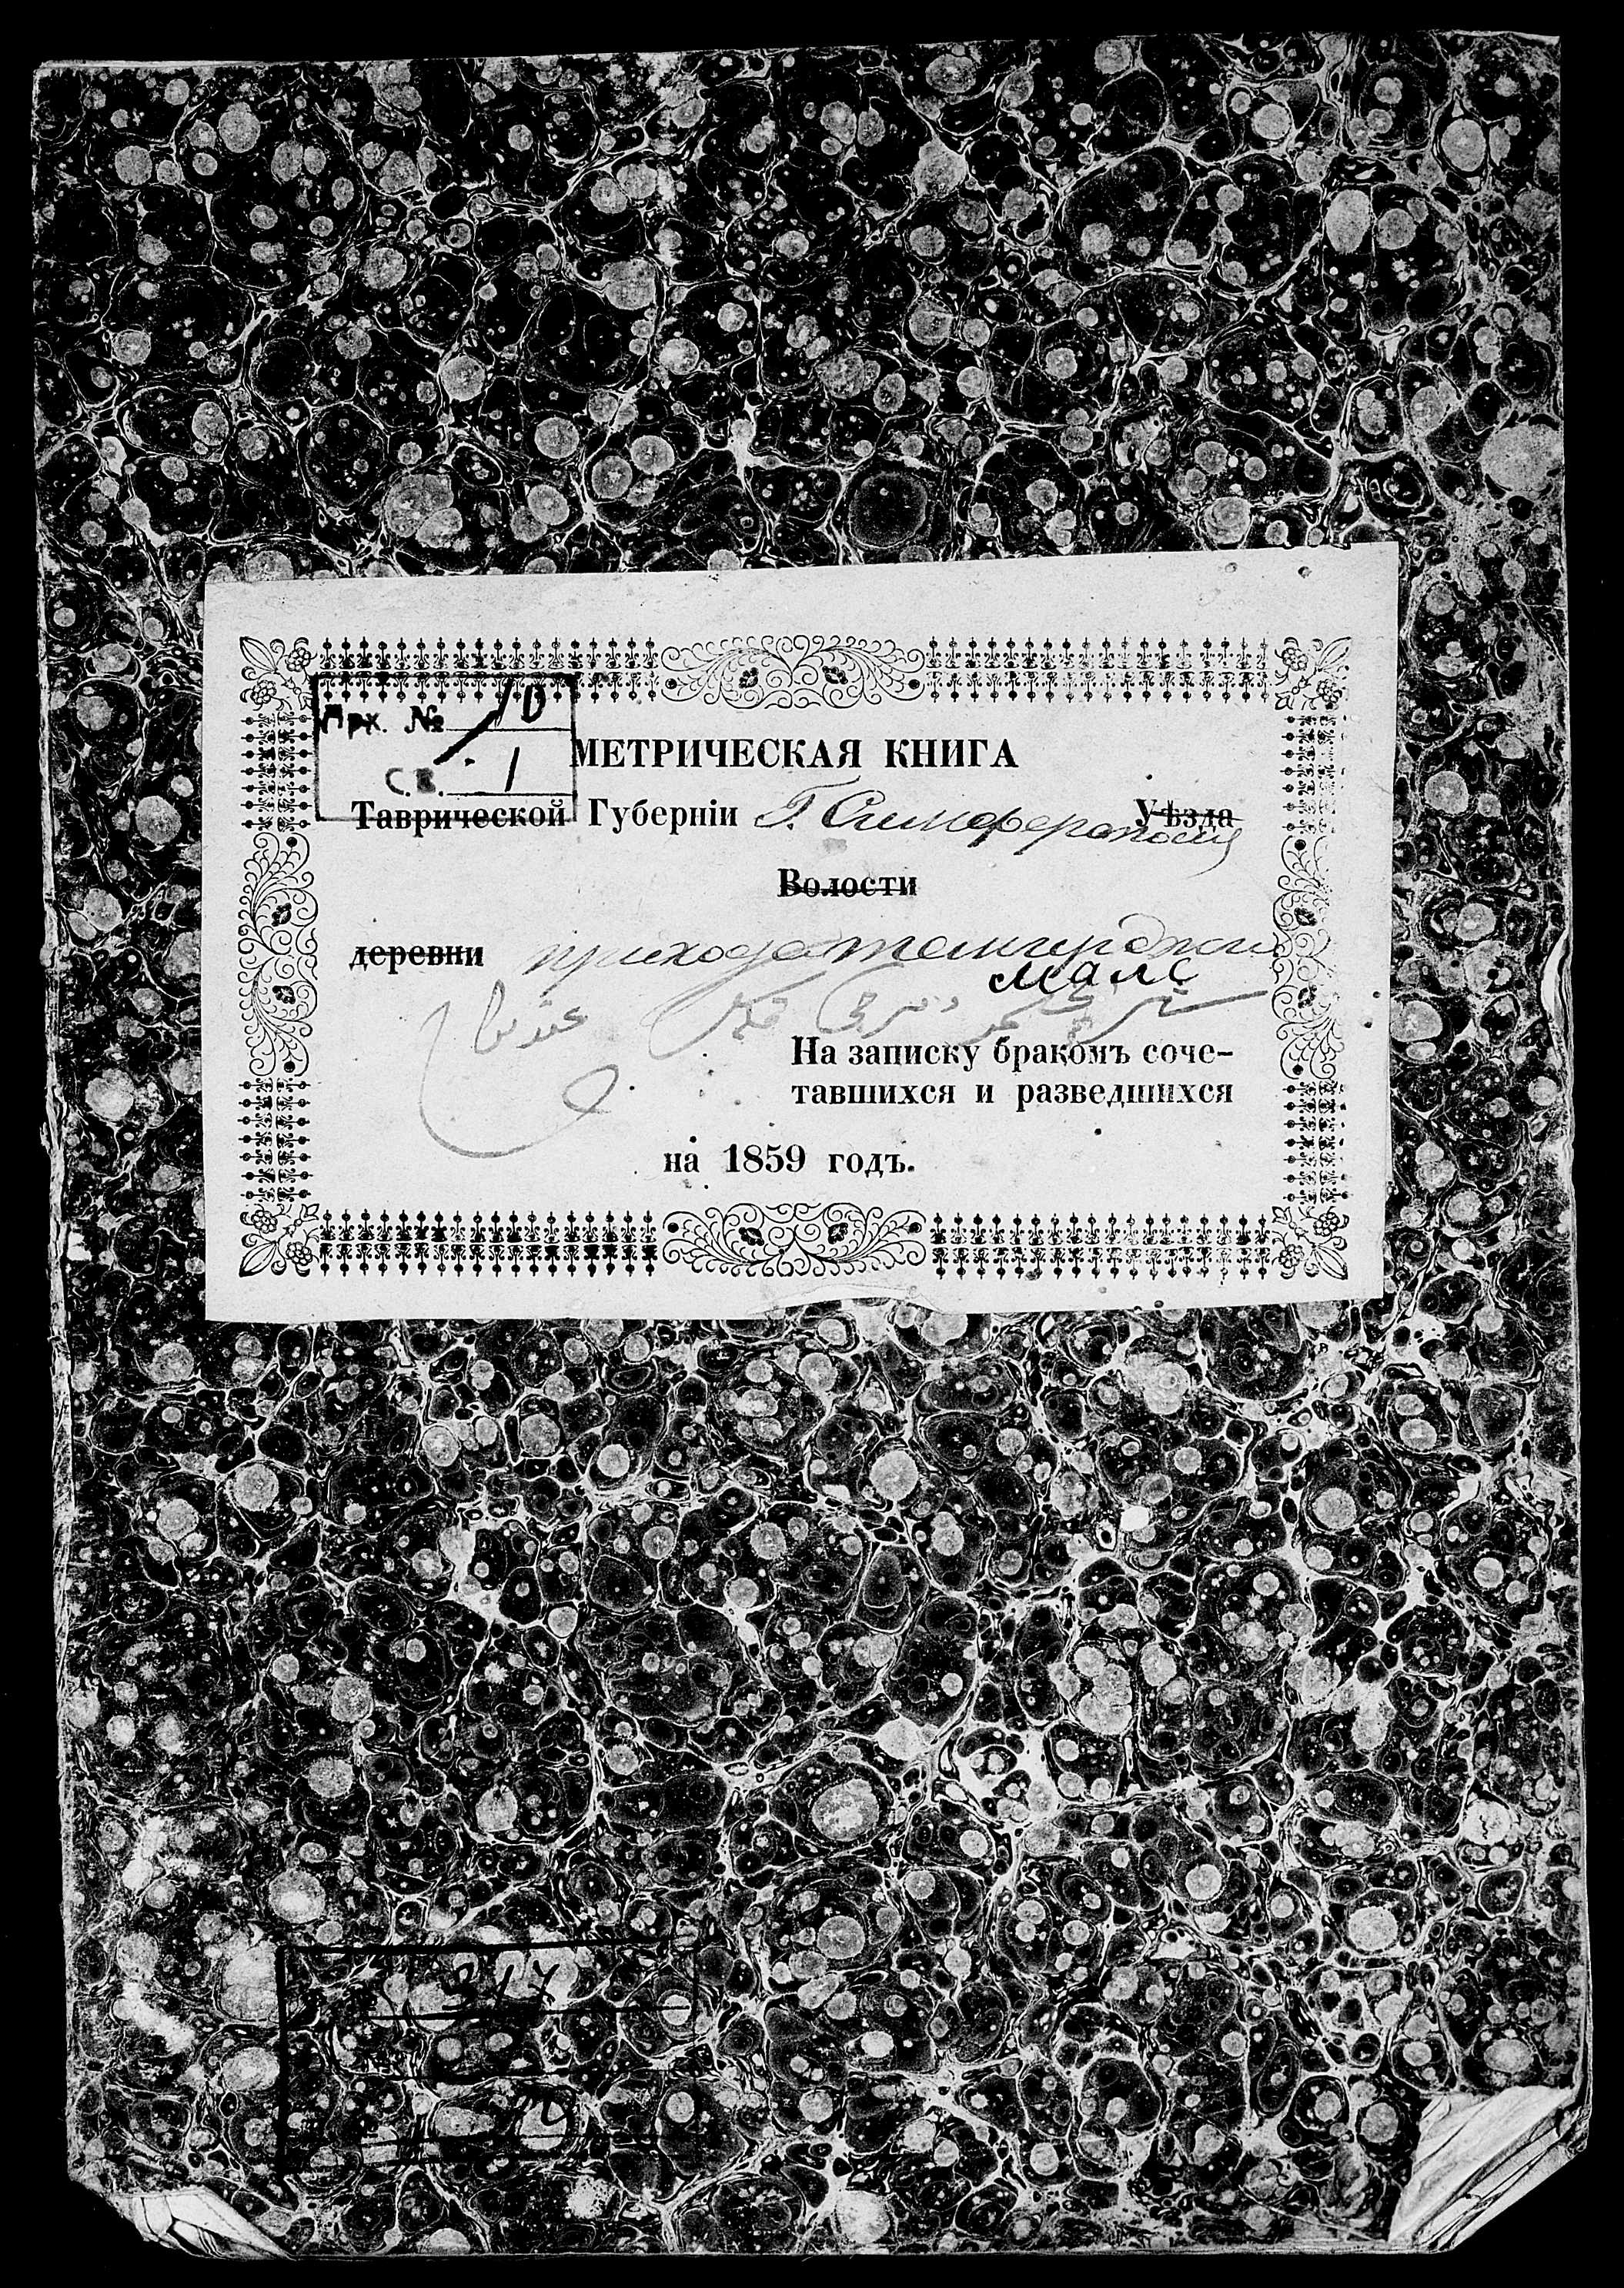 Арх. № 10
св. 1
МЕТРИЧЕСКАЯ КНИГА
Таврической Губерніи Г. Симферополя Уѣзда
Волости
деревни прихода
мале
На записку бракомъ соче-
тавшихся и разведшихся
на 1859 годъ.
317